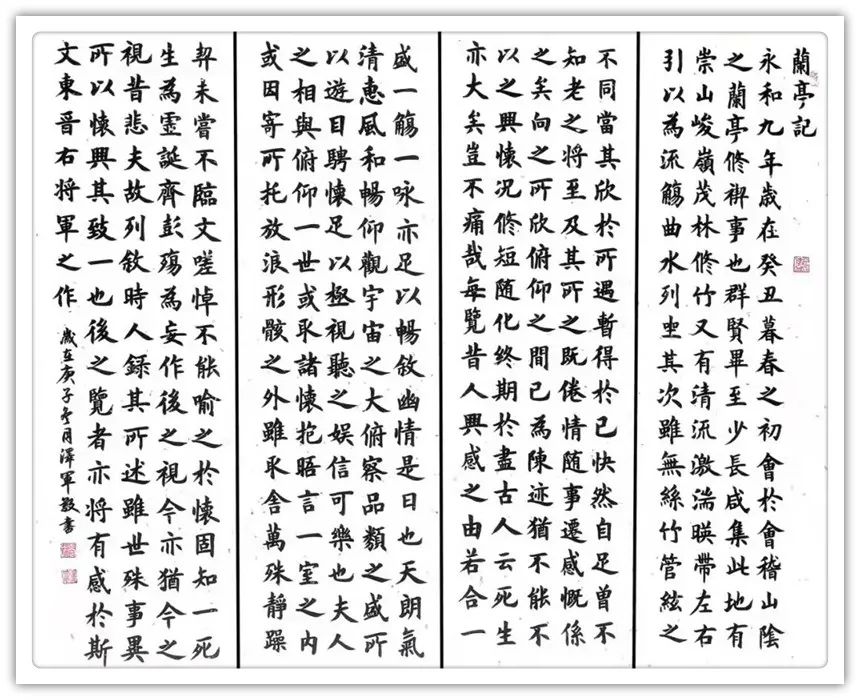 蘭亭記
永和九年歲在癸丑暮春之初會於會稽山陰
之蘭亭修禊事也群賢畢至少長咸集此地有
崇山峻嶺茂林修竹又有清流激湍暎帶左右
引以為流觴曲水列坐其次雖無絲竹管絃之
不同當其欣於所遇暫得於己快然自足曾不
知老之將至及其所之既倦情隨事遷感慨係
之矣向之所欣俯仰之間已為陳迹猶不能不
以之興懷况修短隨化終期於盡古人云死生
亦大矣豈不痛哉每覽昔人興感之由若合一
盛一觴一咏亦足以暢敘幽情是日也天朗氣
清惠風和暢仰觀宇宙之大俯察品類之盛所
以遊目騁懷足以極視聽之娛信可樂也夫人
之相與俯仰一世或取諸懷抱晤言一室之內
或因寄所托放浪形骸之外雖取舍萬殊靜躁
契未嘗不臨文嗟悼不能喻之於懷固知一死
生為虛誕齊彭殤為妄作後之視今亦猶今之
視昔悲夫故列敘時人錄其所述雖世殊事異
所以懷興其致一也後之覽者亦將有感於斯
文東晉右將軍之作
歲在庚子冬月澤軍敬書